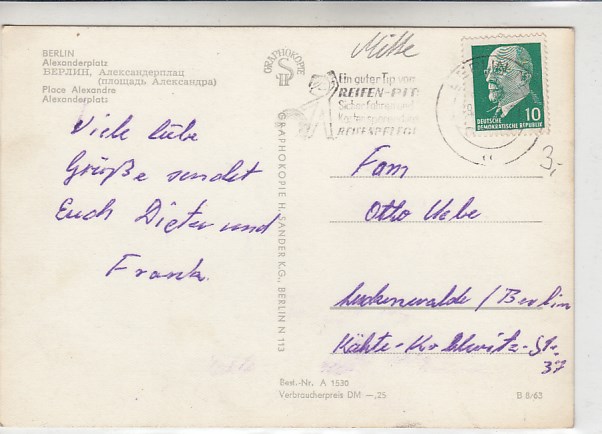 BERLIN
Alexanderplatz
ВЕРЛИН, Александерплац
(площадь Александра)
Place Alexandre
Alexanderplatz
Viele liebe
Grüße sendet
Euch Dieter und
Frank
GRAPHOKOPIE
GRAPHOKOPIE H. SANDER K.G., BERLIN N 113
Mitte
Ein guter Tip von
REIFEN-PIT
Sicher fahren und
REIFENPFLEGE
10
DEUTSCHE
DEMOKRATISCHE REPUBLIK
3,-
Fam
Otto Uebe
Luckenwalde / Berlin
Käthe-Kollwitz-St.
37
Best.-Nr. A 1530
Verbraucherpreis DM —,25
B 8/63